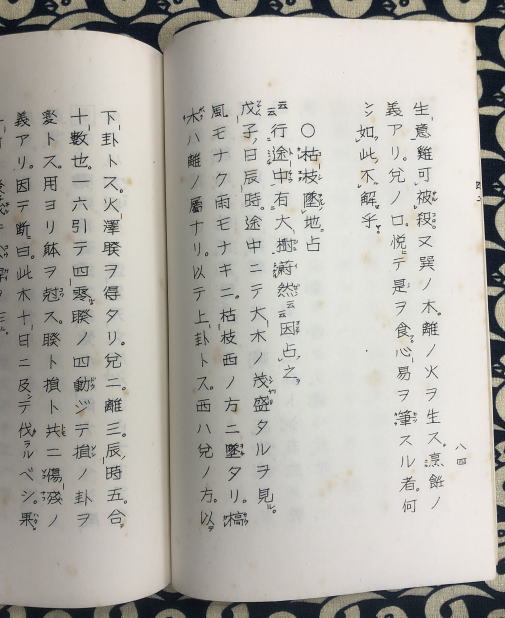 八四
生意難可被殺又巽ノ木。離ノ火ヲ生ス。烹飪ノ
義アリ。兌ノ口。悦テ是ヲ食。心易ヲ筆スル者。何
ン如此不解乎。
〇枯枝墜地占
云行途中有大樹蔚然云云因占之。
戊子ノ日辰ノ時。途中ニテ大木ノ茂盛タルヲ見ル。
風モナク雨モナキニ。枯枝西ノ方ニ墜タリ。槁
木ハ離ノ屬ナリ。以テ上卦トス。西ハ兌ノ方。以テ
下卦トス。火澤睽ヲ得タリ。兌二離三辰ノ時五。合
十數也。一六引テ四零睽ノ四動ジテ損ノ卦ヲ
爻トス。用ヨリ躰ヲ尅ス。睽ト損ト共ニ傷殘ノ
義アリ。因テ断曰。此木十日ニ及デ伐ルベシ。果